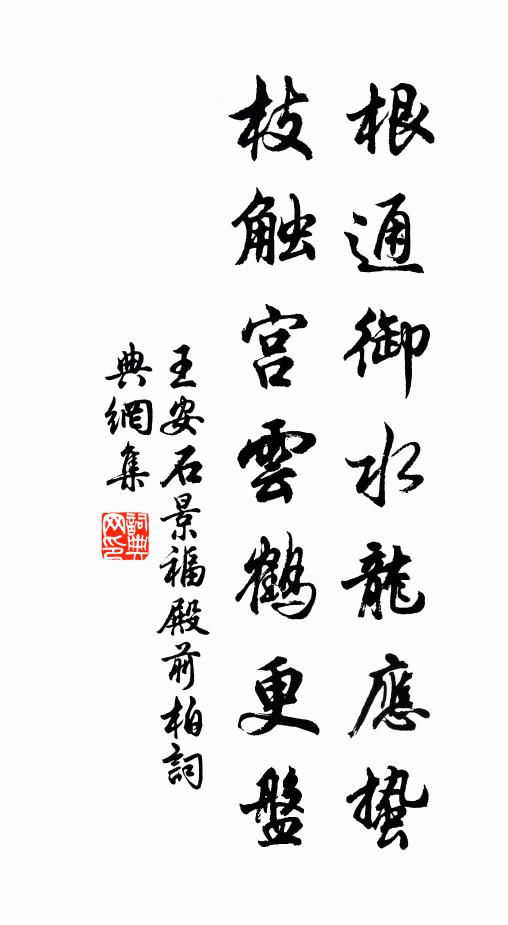 根通御水龍應蟄
枝触宫雲鶴更盤
王安石景福殿前柏詞
典網集
詞典
网印